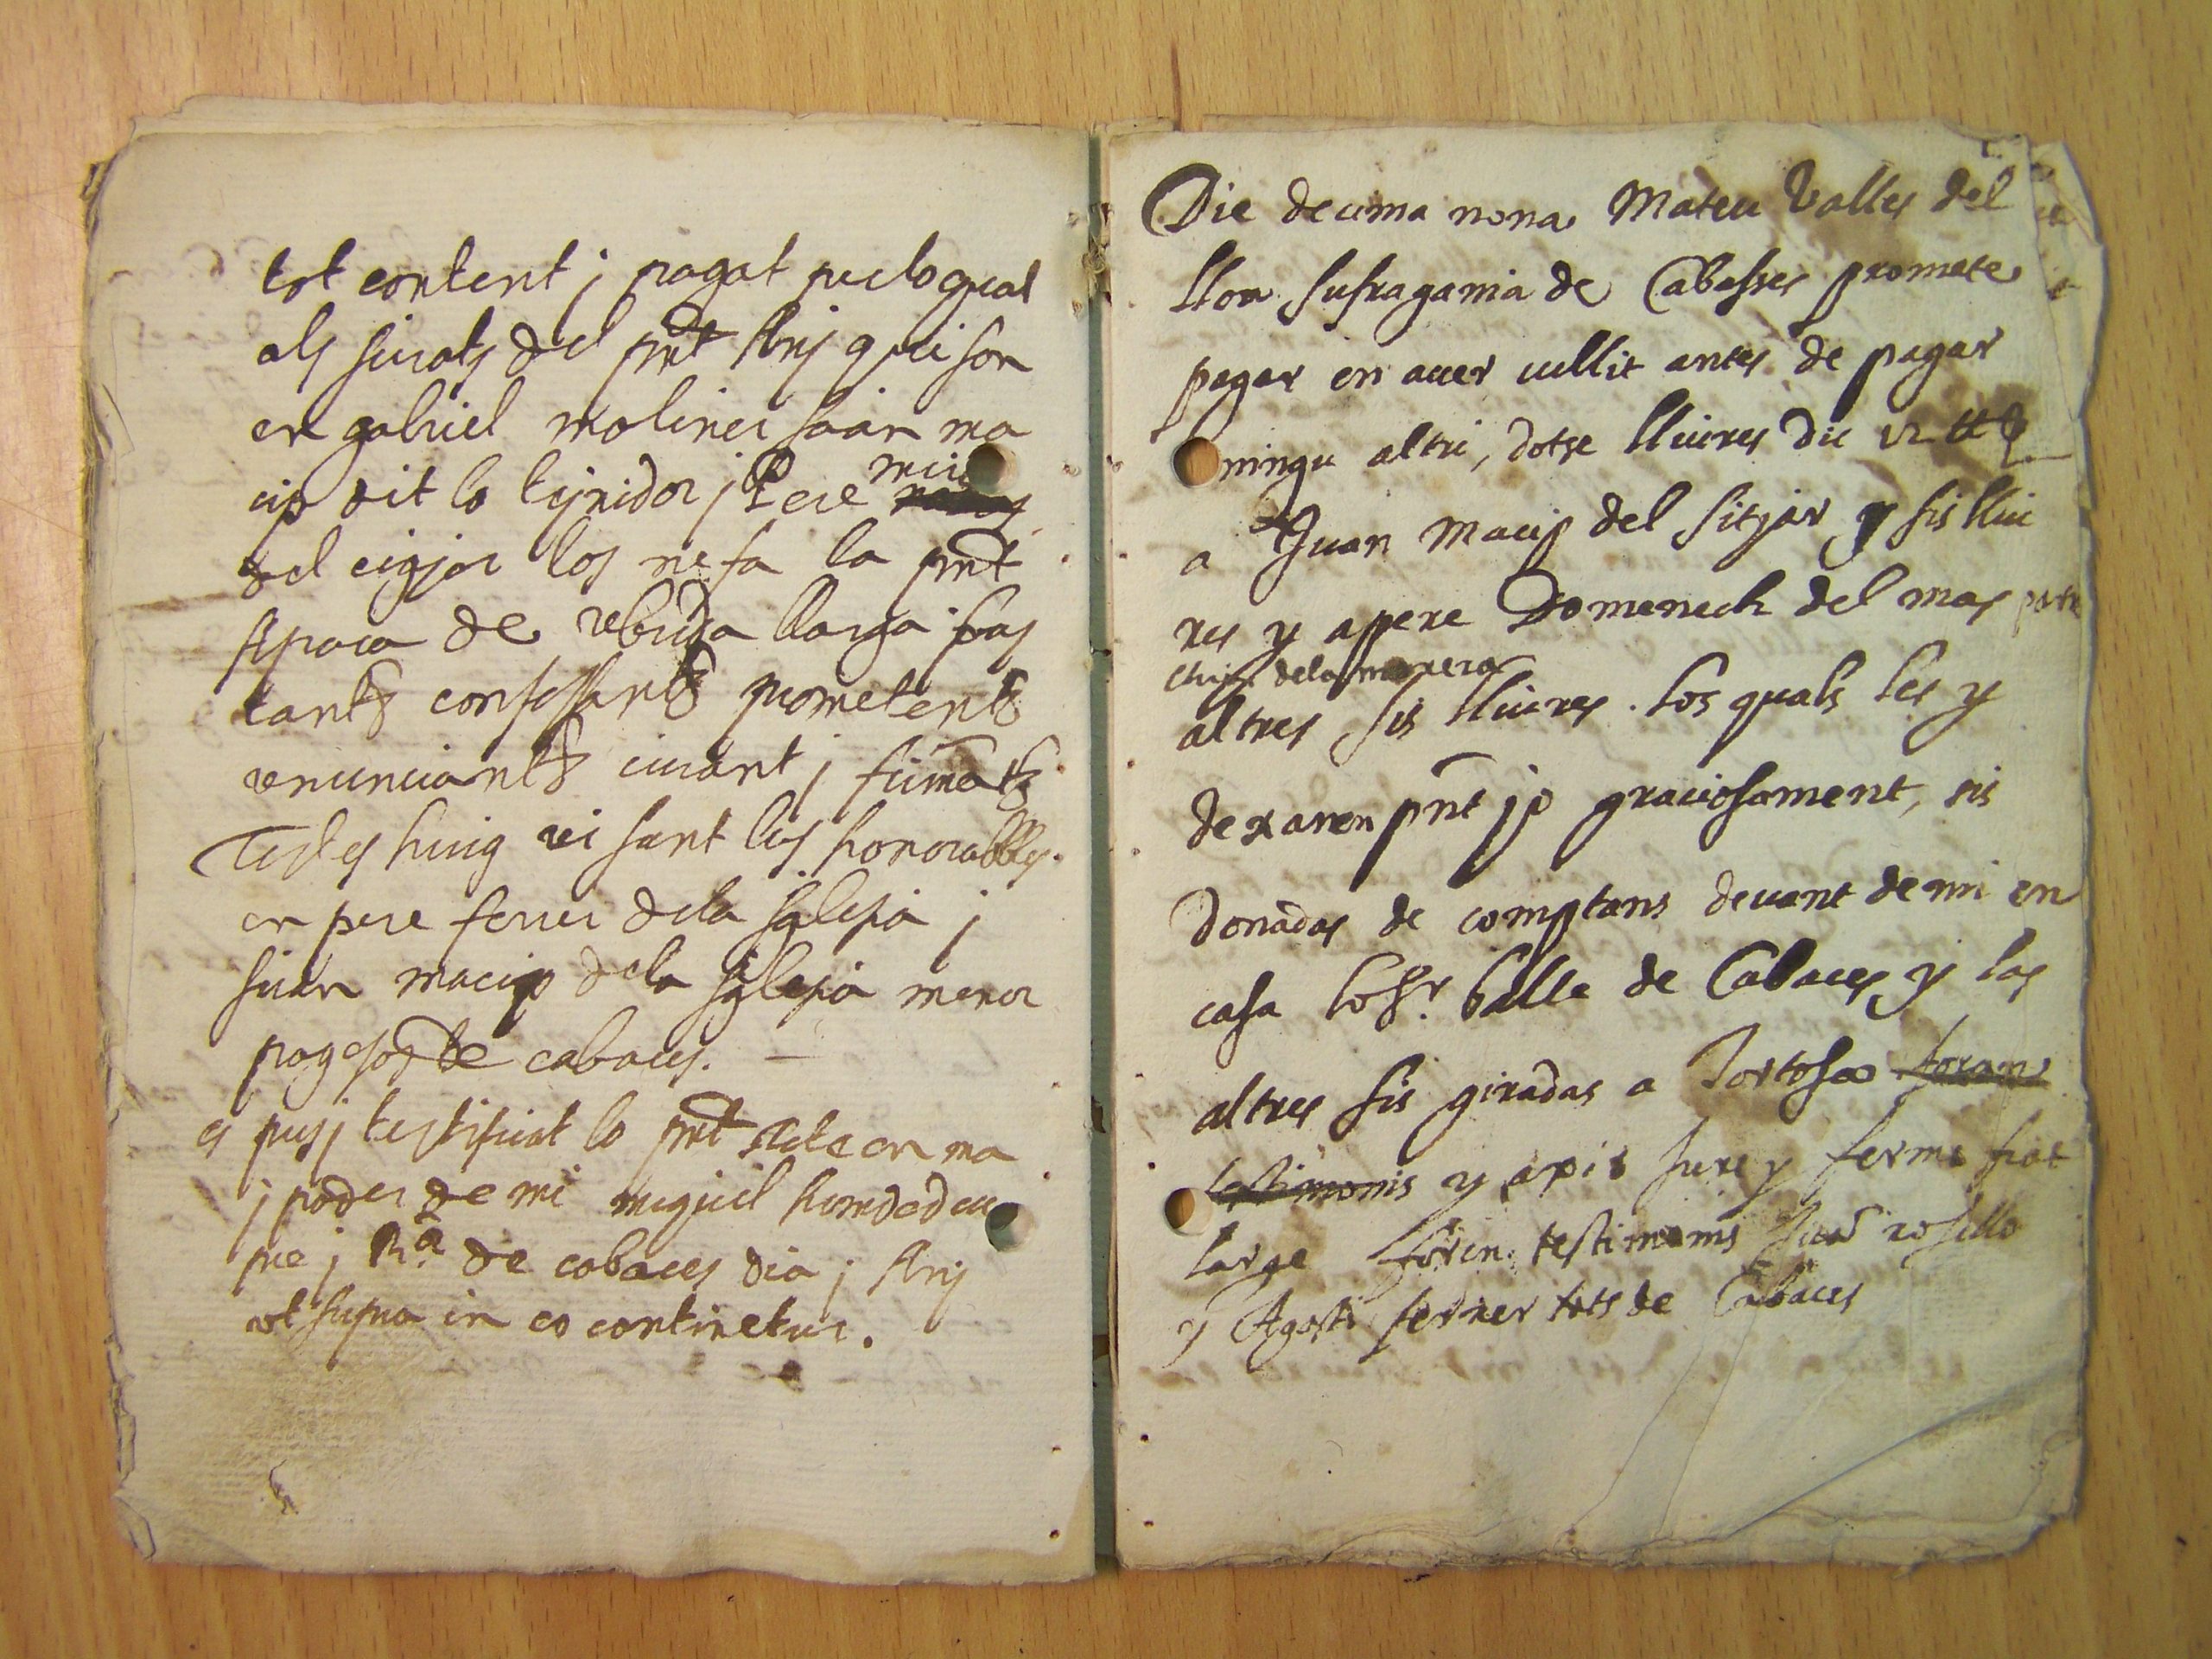 tot content j pagat perloqual
als jurats del pnt Anj qui son
en gabriel moliner juan ma
cip dit lo tejnidor j Pere
del cigjar los ne fa la pnt
Apoca de rebuda llarga bas
tants confessants prometents
renunciants jurant j firmats
Testes huig rei sant los honorables
en pere ferrer dela sglesia j
juan macip dela sglesia menor
pagesos de cabaces.
es pusj testificat lo pnt Acte en ma
j poder de mi miguel homdedeu
pre j Rr. de cabaces dia j Anj
ut supra in eo continetur.
Die decima nona Mateu Valles del
lloa sufragania de Cabasses promete
pagar en auer cullit antes de pagar
ningu altri, dotse lliures dic 12 ll
a Juan Macip del sitjar y sis lliu
res y a pere Domenech del mas
dela
altres sis lliures. los quals les y
dexaren pnt jo graciosament, sis
donadas de comptans deuant de mi en
casa lo Sr. balle de Cabaces y las
altres sis giradas a Tortosa foran
testimonis y axis jure y ferme fiat
large foren testimonis Juan rosello
y Agosti ferrer tots de Cabaces